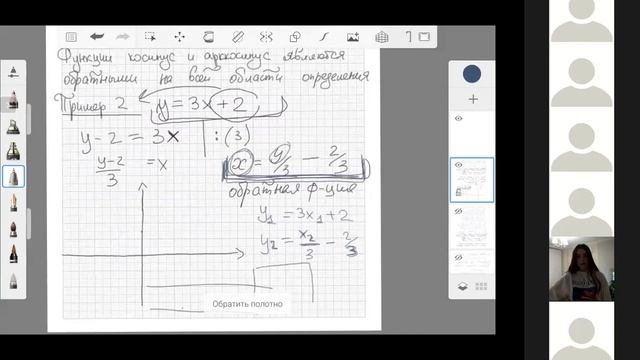 Функции косинус и арккосинус являются
обратными на всей области определения
Пример 2 y = 3x + 2
y - 2 = 3x | : (3)
y-2/3 = x
x = y/3 - 2/3
обратная ф-ция
y₁ = 3x₁ + 2
y₂ = x₂/3 - 2/3
Обратить полотно